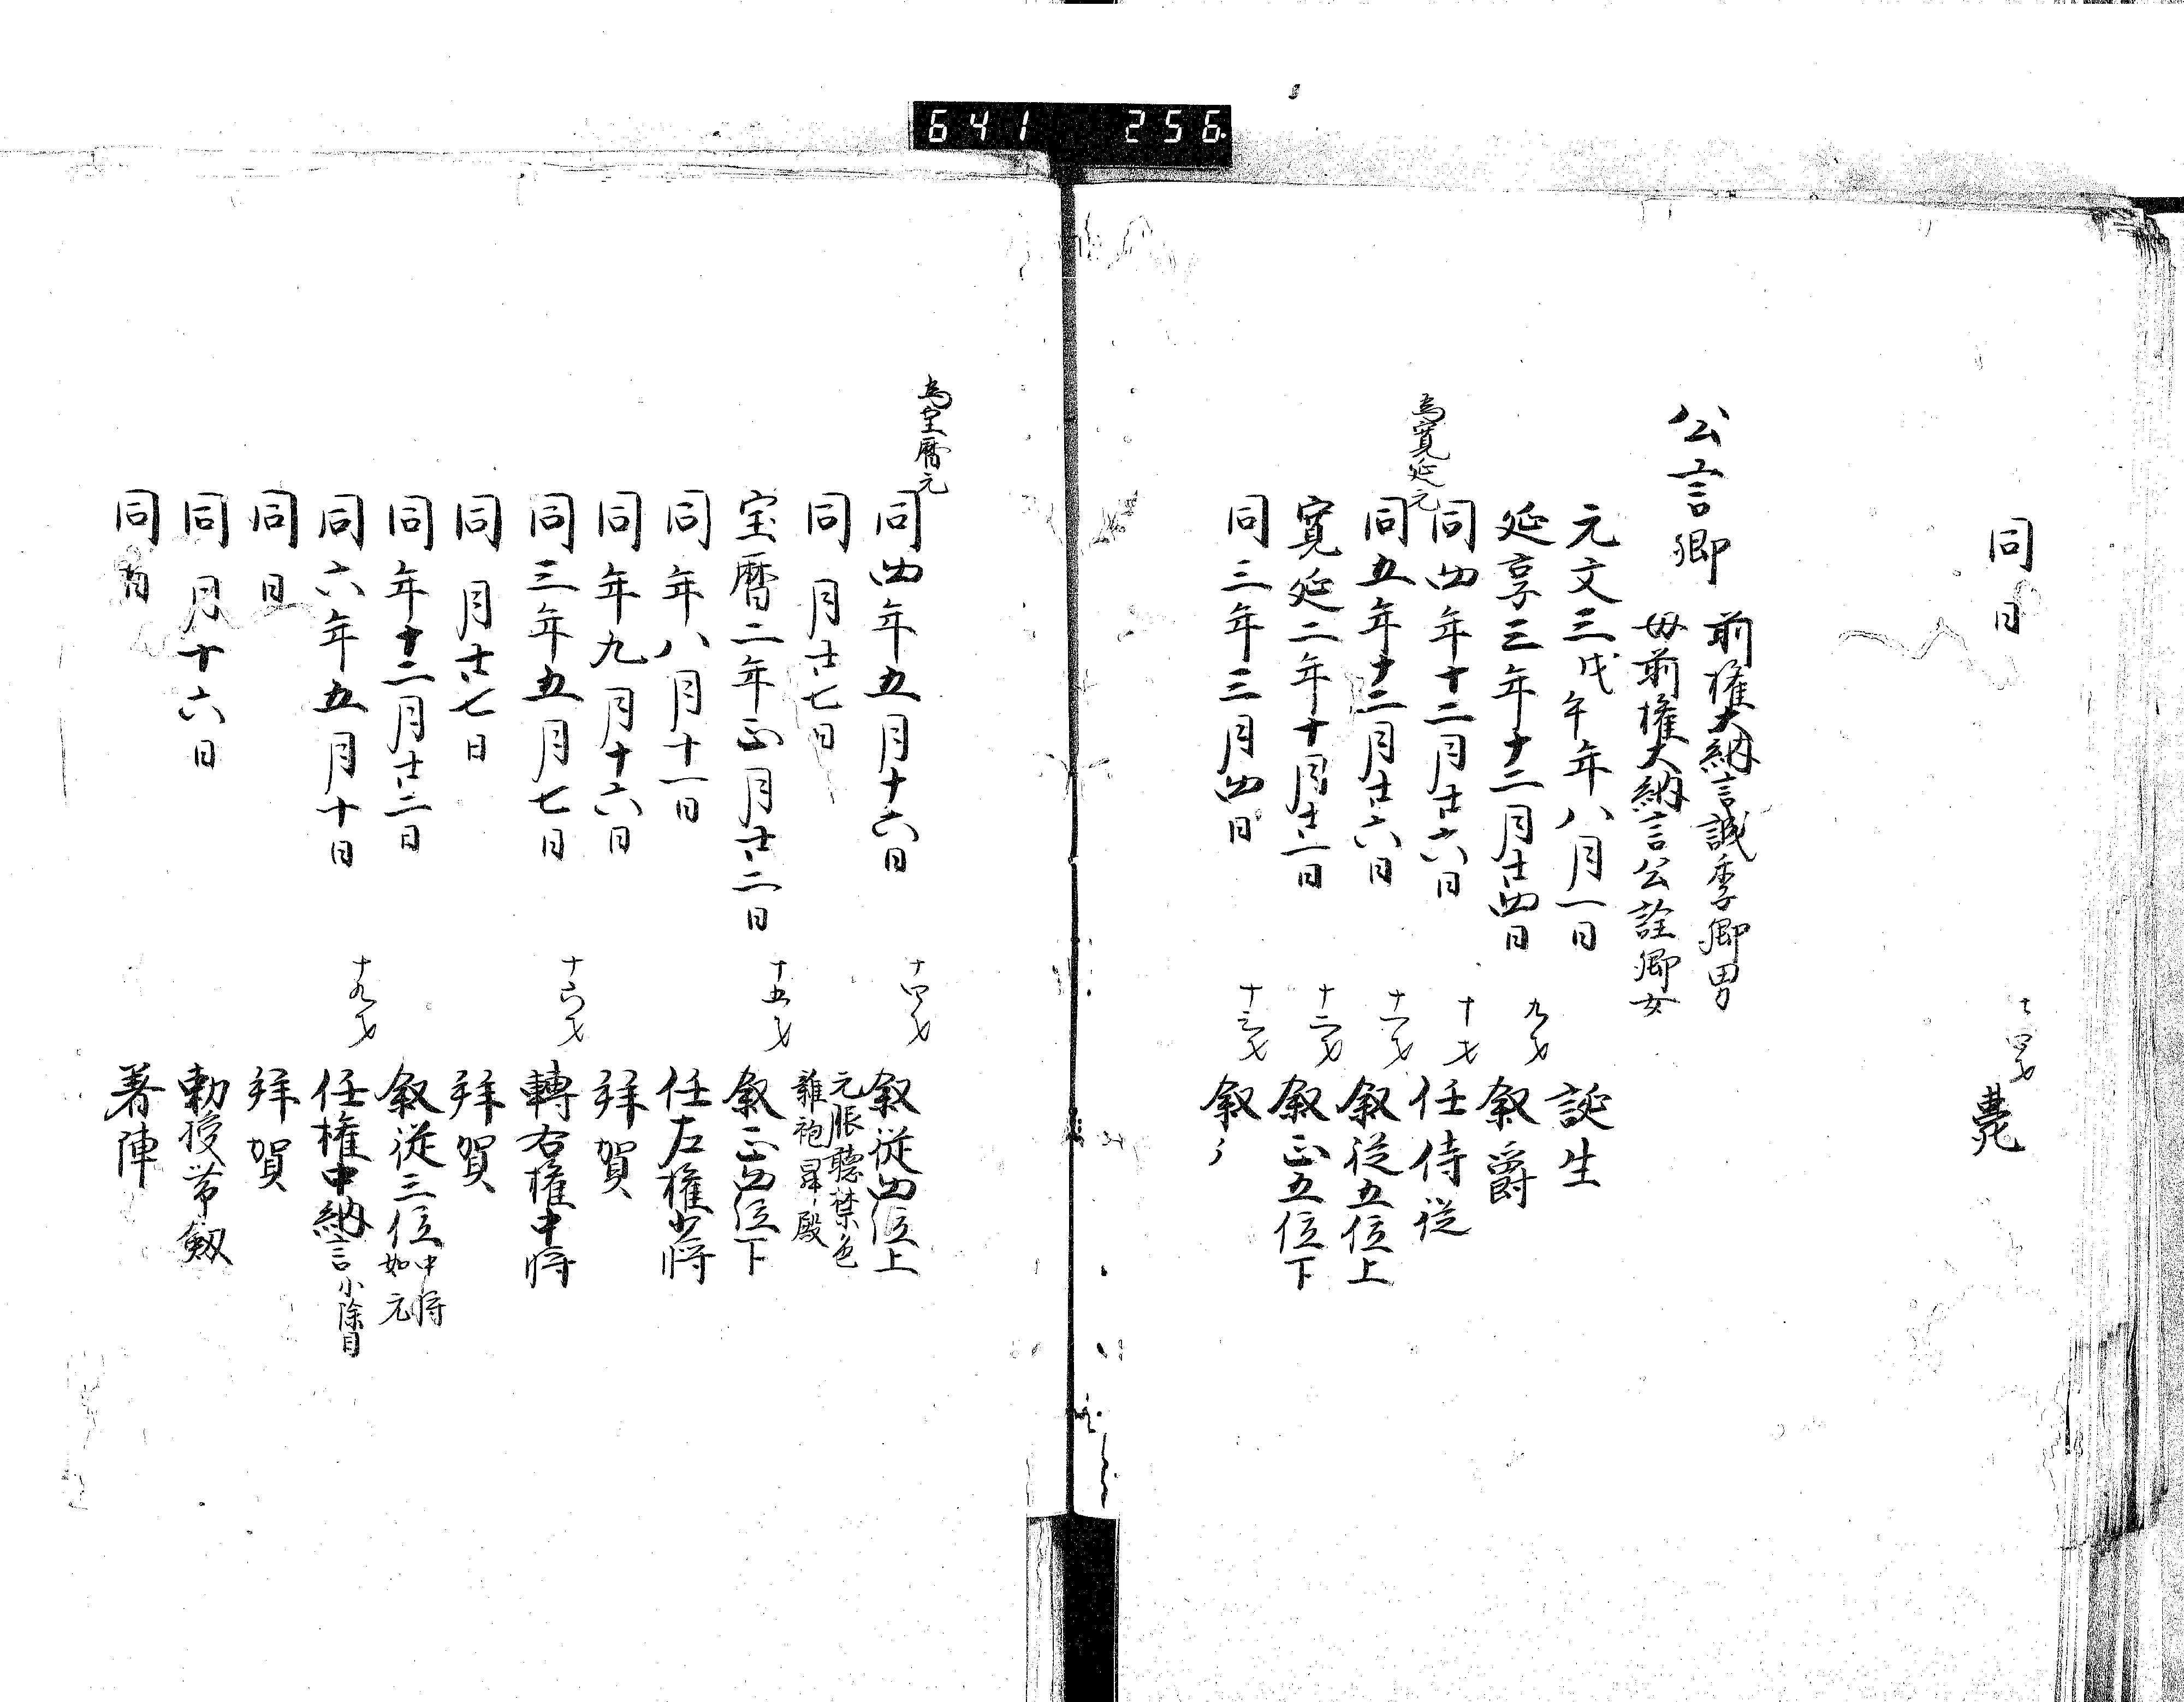 641 256
同日 十四才 薨
公言卿 前権大納言誠季卿男
母前権大納言公詮卿女
元文三戊午年八月一日 誕生
延享三年十二月廿四日 九才 叙爵
同四年十二月廿六日 十才 任侍従
為寛延元
同五年十二月廿六日 十一才 叙従五位上
寛延二年十二月廿二日 十二才 叙正五位下
同三年三月四日 十三才 叙〻
為宝暦元
同四年五月十六日 十四才 叙従四位上
同月廿七日 元服聴禁色
雑袍昇殿
宝暦二年正月廿二日 十五才 叙正四位下
同年八月十一日 任左権少将
同年九月十六日 拝賀
同三年五月七日 十六才 轉右権中将
同月廿七日 拝賀
同年十二月廿二日 叙従三位 中将如元
同六年五月十日 十九才 任権中納言 小除目
同日 拝賀
同月十六日 勅授帯剱
同日 著陣